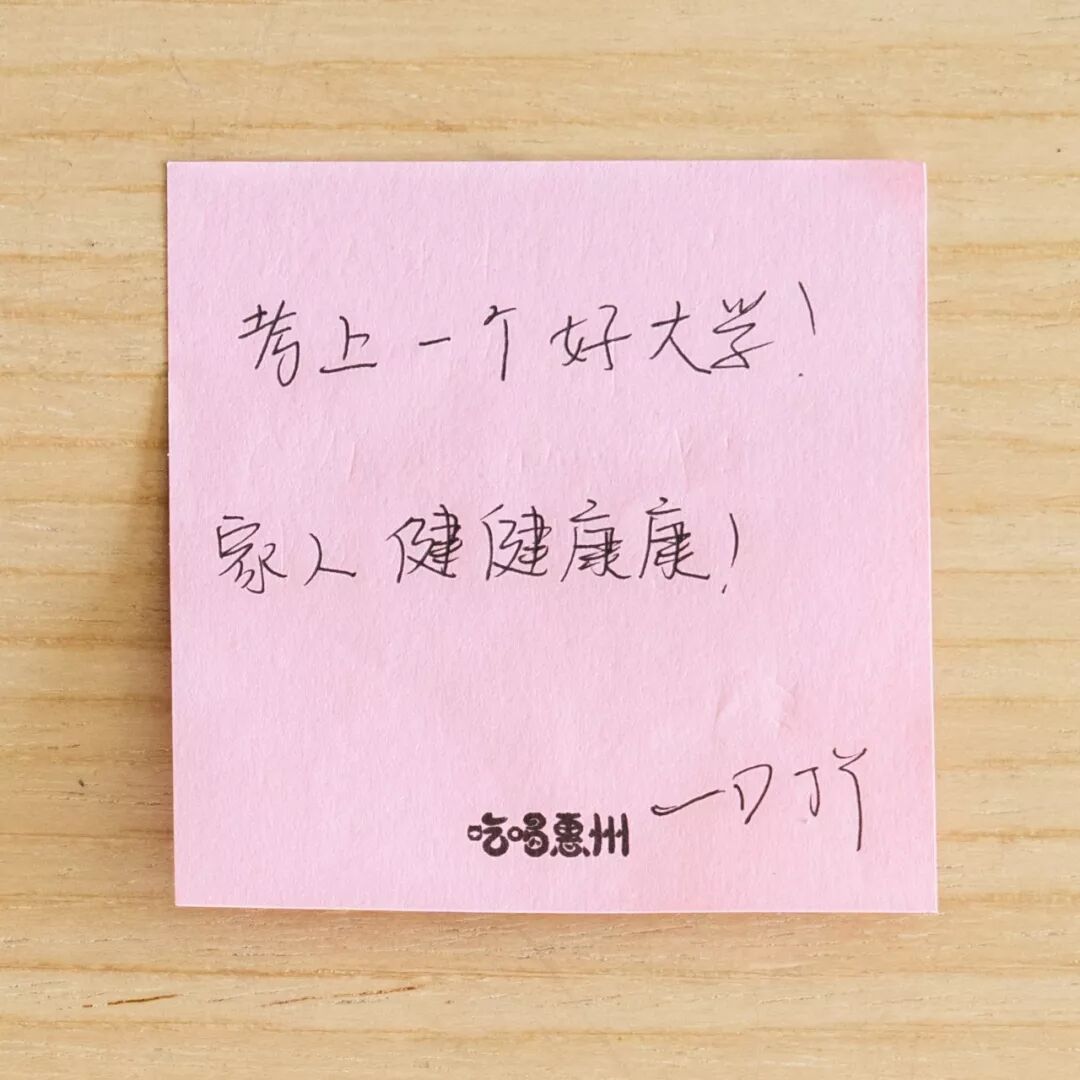 考上一个好大学！
家人健健康康！
吃喝惠州